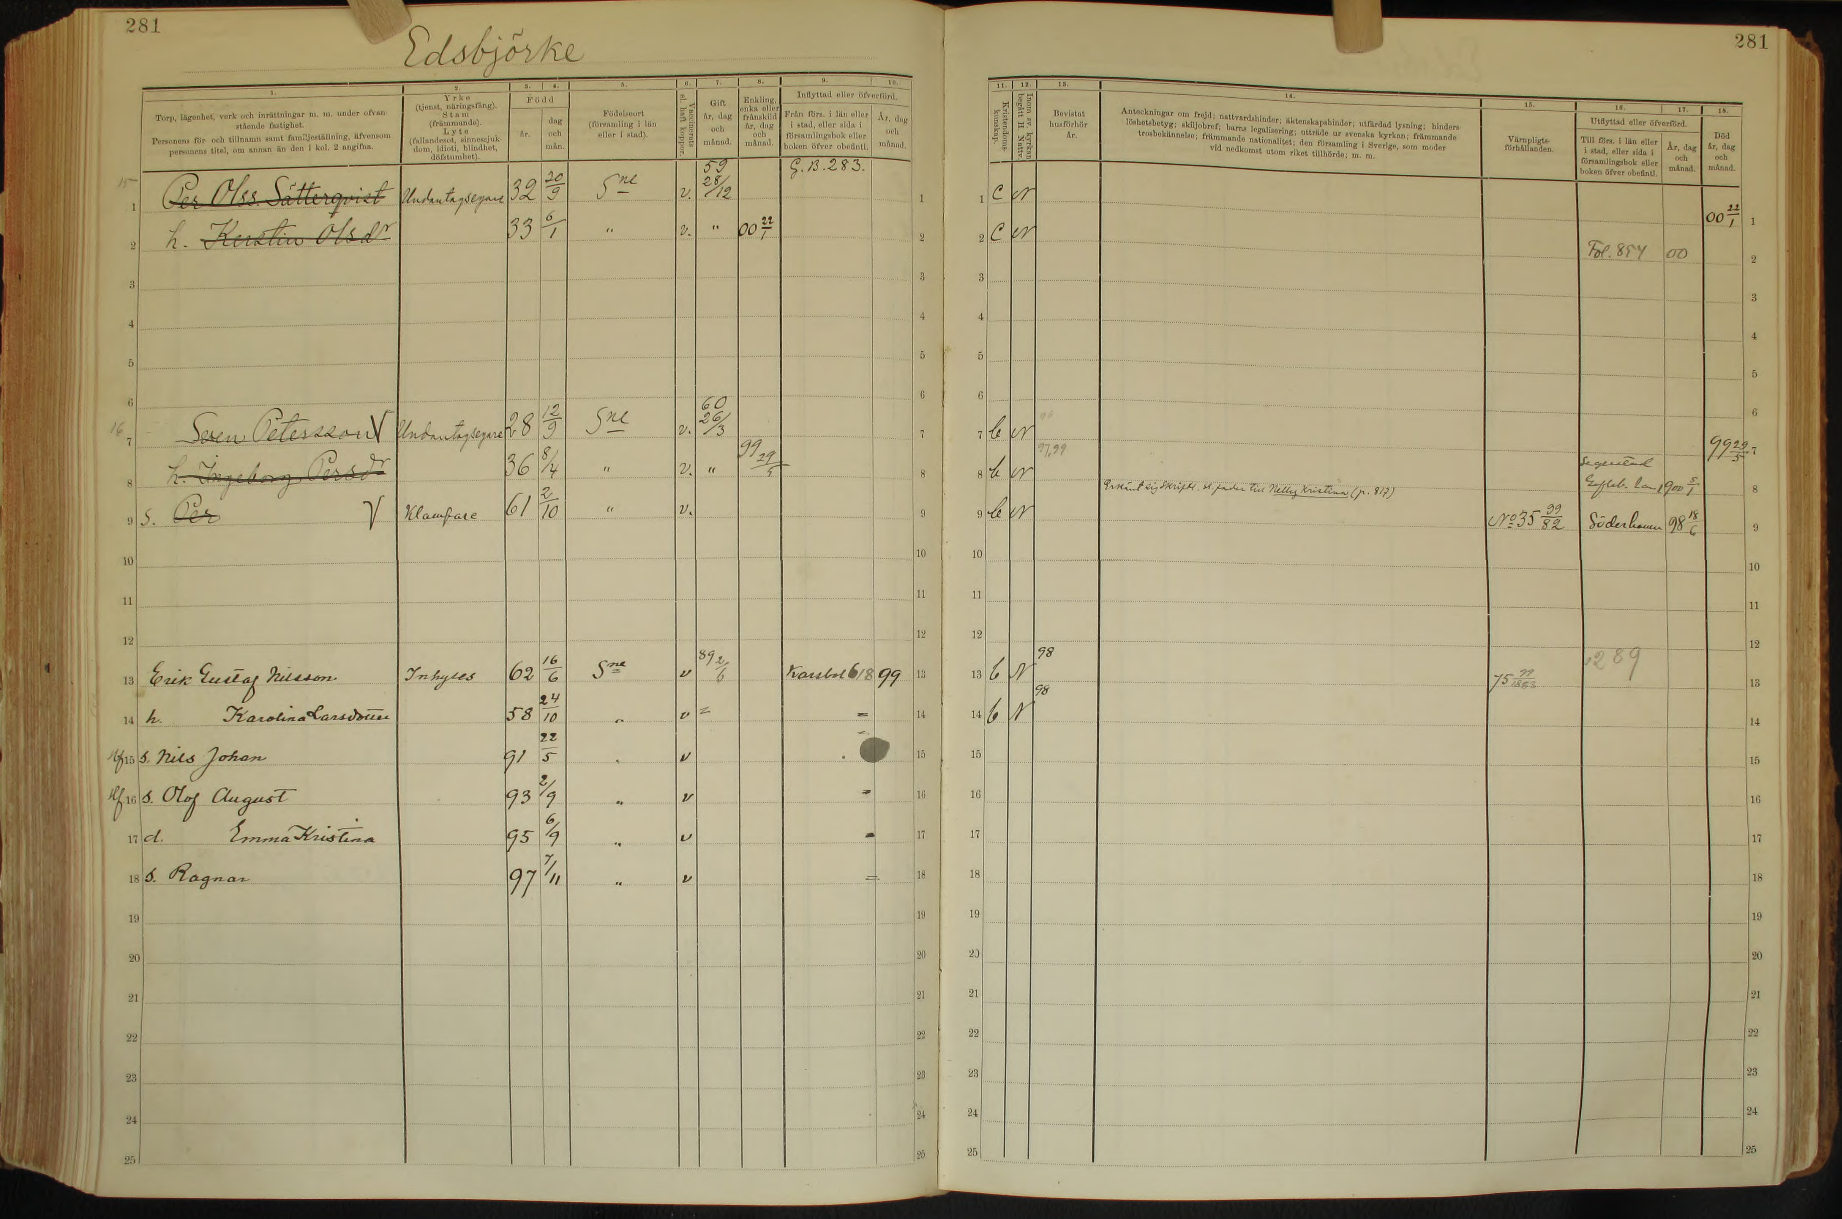 281
Edsbjörke
1. 2. 3. 4. 5. 6. 7. 8. 9. 10.
Torp, lägenhet, verk och inrättningar m. m. under ofvanstående fastighet.
Personens för- och tillnamn samt familjeställning, äfvensom personens titel, om annan än den i kol. 2 angifna.
Yrke (tjenst, näringsfång). Stam (främmande). Lyte (fallandesot, sinnessjukdom, idioti, blindhet, döfstumhet).
Född
år.
dag och mån.
Födelseort (församling i län eller i stad).
Vaccinerats el. haft koppor.
Gift år, dag och månad.
Enkling, enka eller frånskild år, dag och månad.
Inflyttad eller öfverförd.
Från förs. i län eller i stad, eller sida i församlingsbok eller boken öfver obefintl.
År, dag och månad.
15 1 Per Olss. Sätterqvist Undantagsegare 32 20/9 Sne v. 59 28/12 G.B. 283. 1
2 h. Kerstin Olsdr 33 6/1 " v. " 00 22/1 2
3 3
4 4
5 5
6 6
16 7 Sven Petersson V Undantagsegare 28 12/9 Sne v. 60 26/3 7
8 h. Ingeborg Persdr 36 8/4 " v. " 99 29/5 8
9 s. Per V Klampare 61 2/10 " v. 9
10 10
11 11
12 12
13 Erik Gustaf Nilsson Inhyses 62 16/6 Sne v 89 2/6 Karsbol 618 99 13
14 h. Karolina Larsdotter 58 24/10 " v = = 14
15 s. Nils Johan 91 22/5 . v 15
16 s. Olof August 93 2/9 " v = 16
17 d. Emma Kristina 95 6/9 " v = 17
18 s. Ragnar 97 7/11 " v = 18
19 19
20 20
21 21
22 22
23 23
24 24
25 25
281
11. 12. 13. 14. 15. 16. 17. 18.
Kristendomskunskap.
Inom sv. kyrkan begått H. Nattv.
Bevistat husförhör år.
Anteckningar om frejd; nattvardshinder; äktenskapshinder; utfärdad lysning; hinders löshetsbetyg; skiljobref; barns legalisering; utträde ur svenska kyrkan; främmande trosbekännelse; främmande nationalitet; den församling i Sverige, som moder vid nedkomst utom riket tillhörde; m. m.
Värnpligtsförhållanden.
Utflyttad eller öfverförd.
Till förs. i län eller i stad, eller sida i församlingsbok eller boken öfver obefintl.
År, dag och månad.
Död år, dag och månad.
1 C N 00 22/1 1
2 C N Fol. 854 00 2
3 3
4 4
5 5
6 6
7 C N 99 29/5 7
8 C N 97,99 900 5/1 8
9 C N No 35 99/82 Söderhamn 98 18/6 9
10 10
11 11
12 12
13 C N 98 75 289 13
14 C N 98 14
15 15
16 16
17 17
18 18
19 19
20 20
21 21
22 22
23 23
24 24
25 25